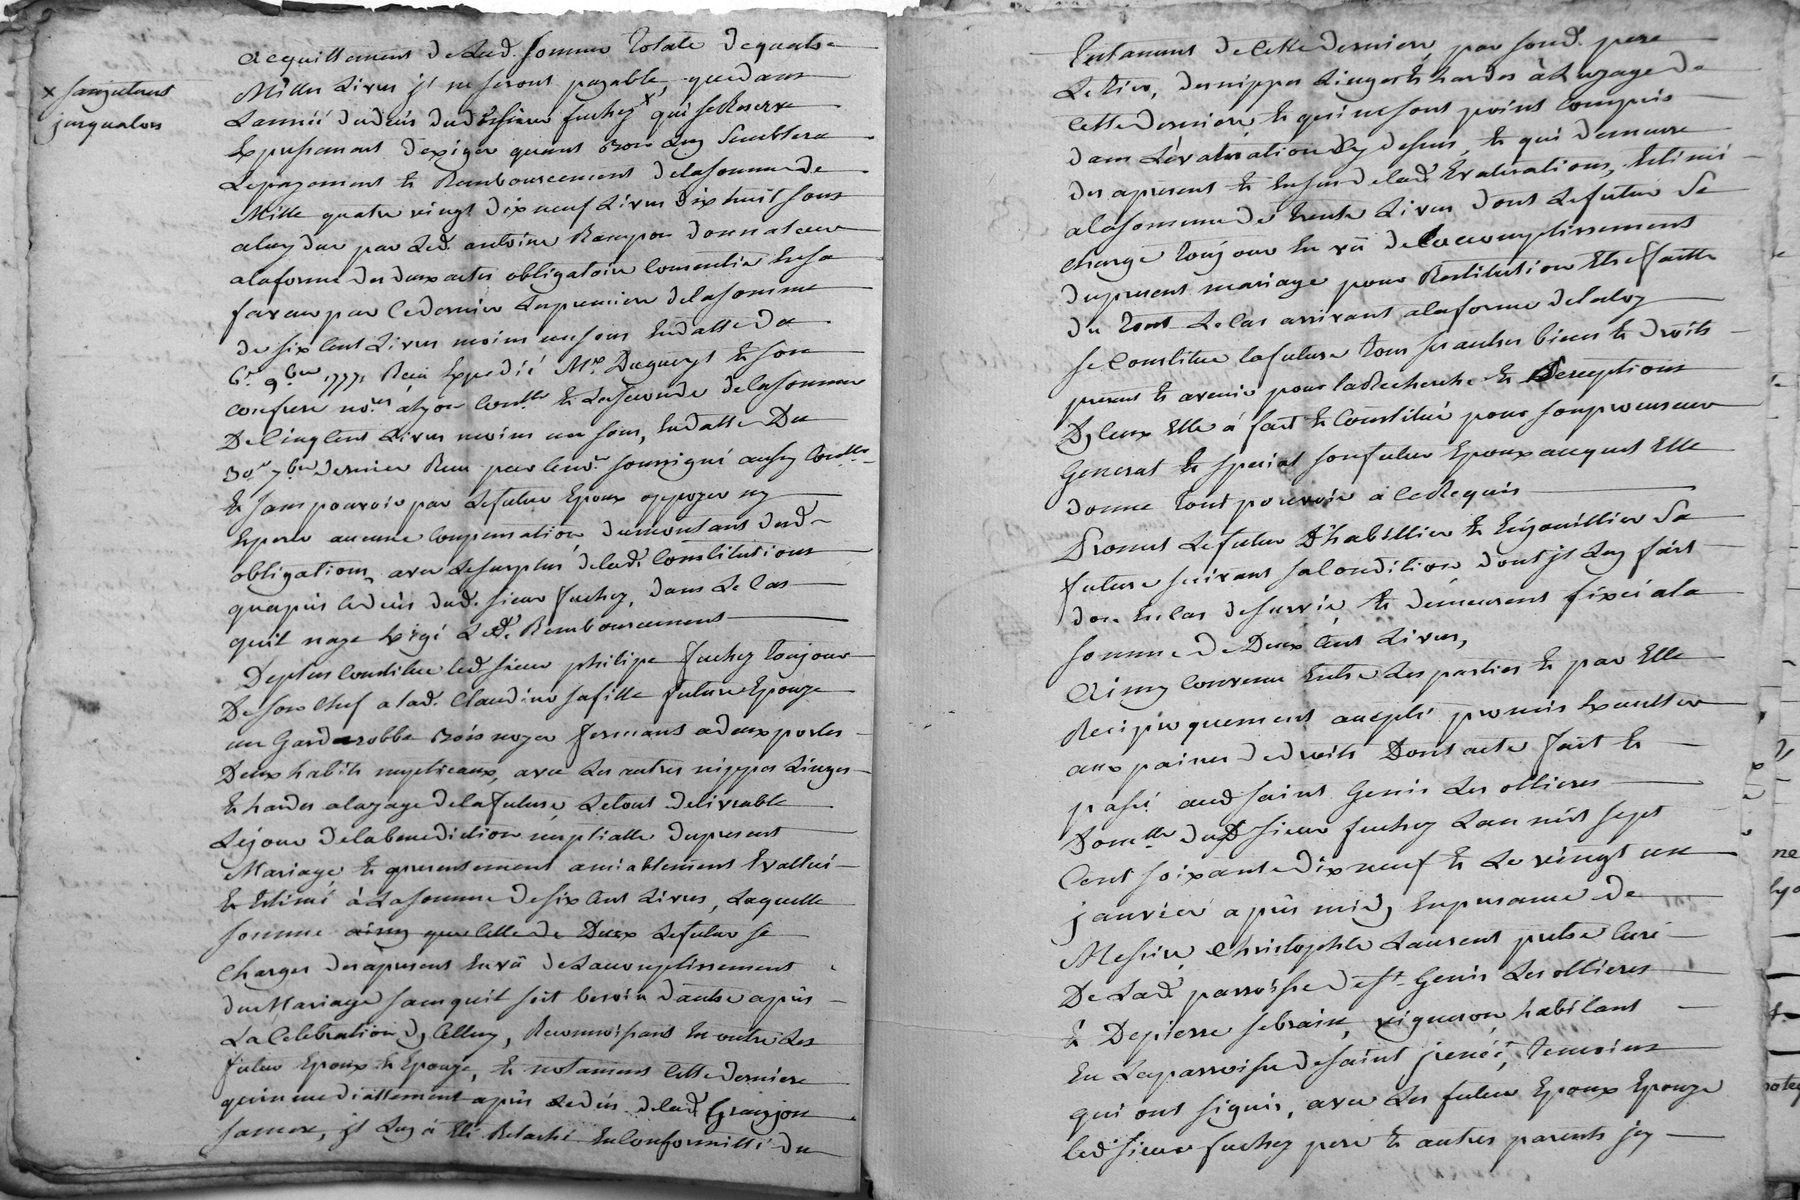 x sans interets
jusqualors
acquittement de Lad. Somme totale de quatre
Mille Livres jl ne seront payable, que dans
Lannée du déces dud. sieur fuchez x qui se Reserve
Expressement d'exiger quant Bon Luy Semblera
Le payement et Remboursement de la somme de
Mille quatre vingt dix neuf Livres dix huit sous
a luy due par Led. antoine donnateur
a la forme des deux actes obligatoire Consentie En sa
faveur par ce dernier La premiere de la somme
de six Cent Livres moins un sous En datte du
6e. 9bre 1777, Reçu Expedié Me. Dugueyt et son
confrere nores. a Lyon et La seconde de la somme
De Cinq Cent Livres moins un sous, En datte Du
30e. 7bre Dernier Reçu par le nore. soussigné aussy
et sans pouvoir par Le futur Epoux opposer ny
Esperer aucune Compensation du montant desd.
obligations, avec Le surplus de lad. Constitutions
qu'apres le déces dud. sieur fuchez, dans Le Cas
quil naye Exigé Led. Remboursement
De plus Constitue led. sieur philipe fuchez toujour
De son Chef a lad. Claudine sa fille future Epouze
un Garderobbe Bois noyer fermant a deux portes
Deux habits nuptieaux, avec Les autres nippes Linges
et hardes a lazage de la future Le tout delivrable
Le jour de la benediction nuptialle du present
Mariage et presentement amiablement Evallué
et Estimé à La somme de six Cent Livres, Laquelle
somme ainsy que Celle de Deux Le futur se
Charge des apresent En vû de L'accomplissement
du Mariage sans quil soit besoin d'autre après
La Celebration d'jcelluy, Reconnoissant En outre Les
futur Epoux et Epouze, et notament Cette derniere
qu'immediattement après Le déces de lad. Granjon
sa mere, jl Luy a Eté Relaché En Conformitté du
testament de Cette derniere, par sond. pere
Le Rière, des nippes Linges et hardes à L'uzage de
Cette derniere, et qui ne sont point Compris
dans L'évaluation Cy dessus, et qui demeure
des apresent et En sus de lad. Evaluations, Estimé
a la somme de trente Livres dont Le futur se
charge toujour En vû de L'accomplissement
du present mariage pour Restitution Etre faitte
du tout Le Cas arrivant a la forme de la loy
se Constitue La future tous ses autres biens et droits
present et avenir pour la Recherche et Perceptions
D'jceux Elle à fait et Constitué pour son procureur
General et special son futur Epoux auquel Elle
donne tout pouvoir à Ce Requis
Promet Le futur D'habillier et Enjouillier sa
future suivant sa Condition dont jl Luy fait
don En Cas de survie, et demeurent fixés a la
somme de Deux Cent Livres,
Ainsy Convenu Entre Les parties et par Elle
Reciproquement accepté promis Executter
aux paines de droits Dont acte fait et
passé aud. saint Genis Les ollieres
Domlle dud. sieur fuchez L'an mil sept
Cent soixante dix neuf et Le vingt un
janvier après midy En presance de
Messire Christophle Laurent pretre Curé
De Lad. parroisse de st. Genis Les ollieres
& De pierre vigneron, habitant
En La parroisse de saint temoins
qui ont signés, avec Les futur Epoux Epouze
led. sieur fuchez pere et autres parents jcy